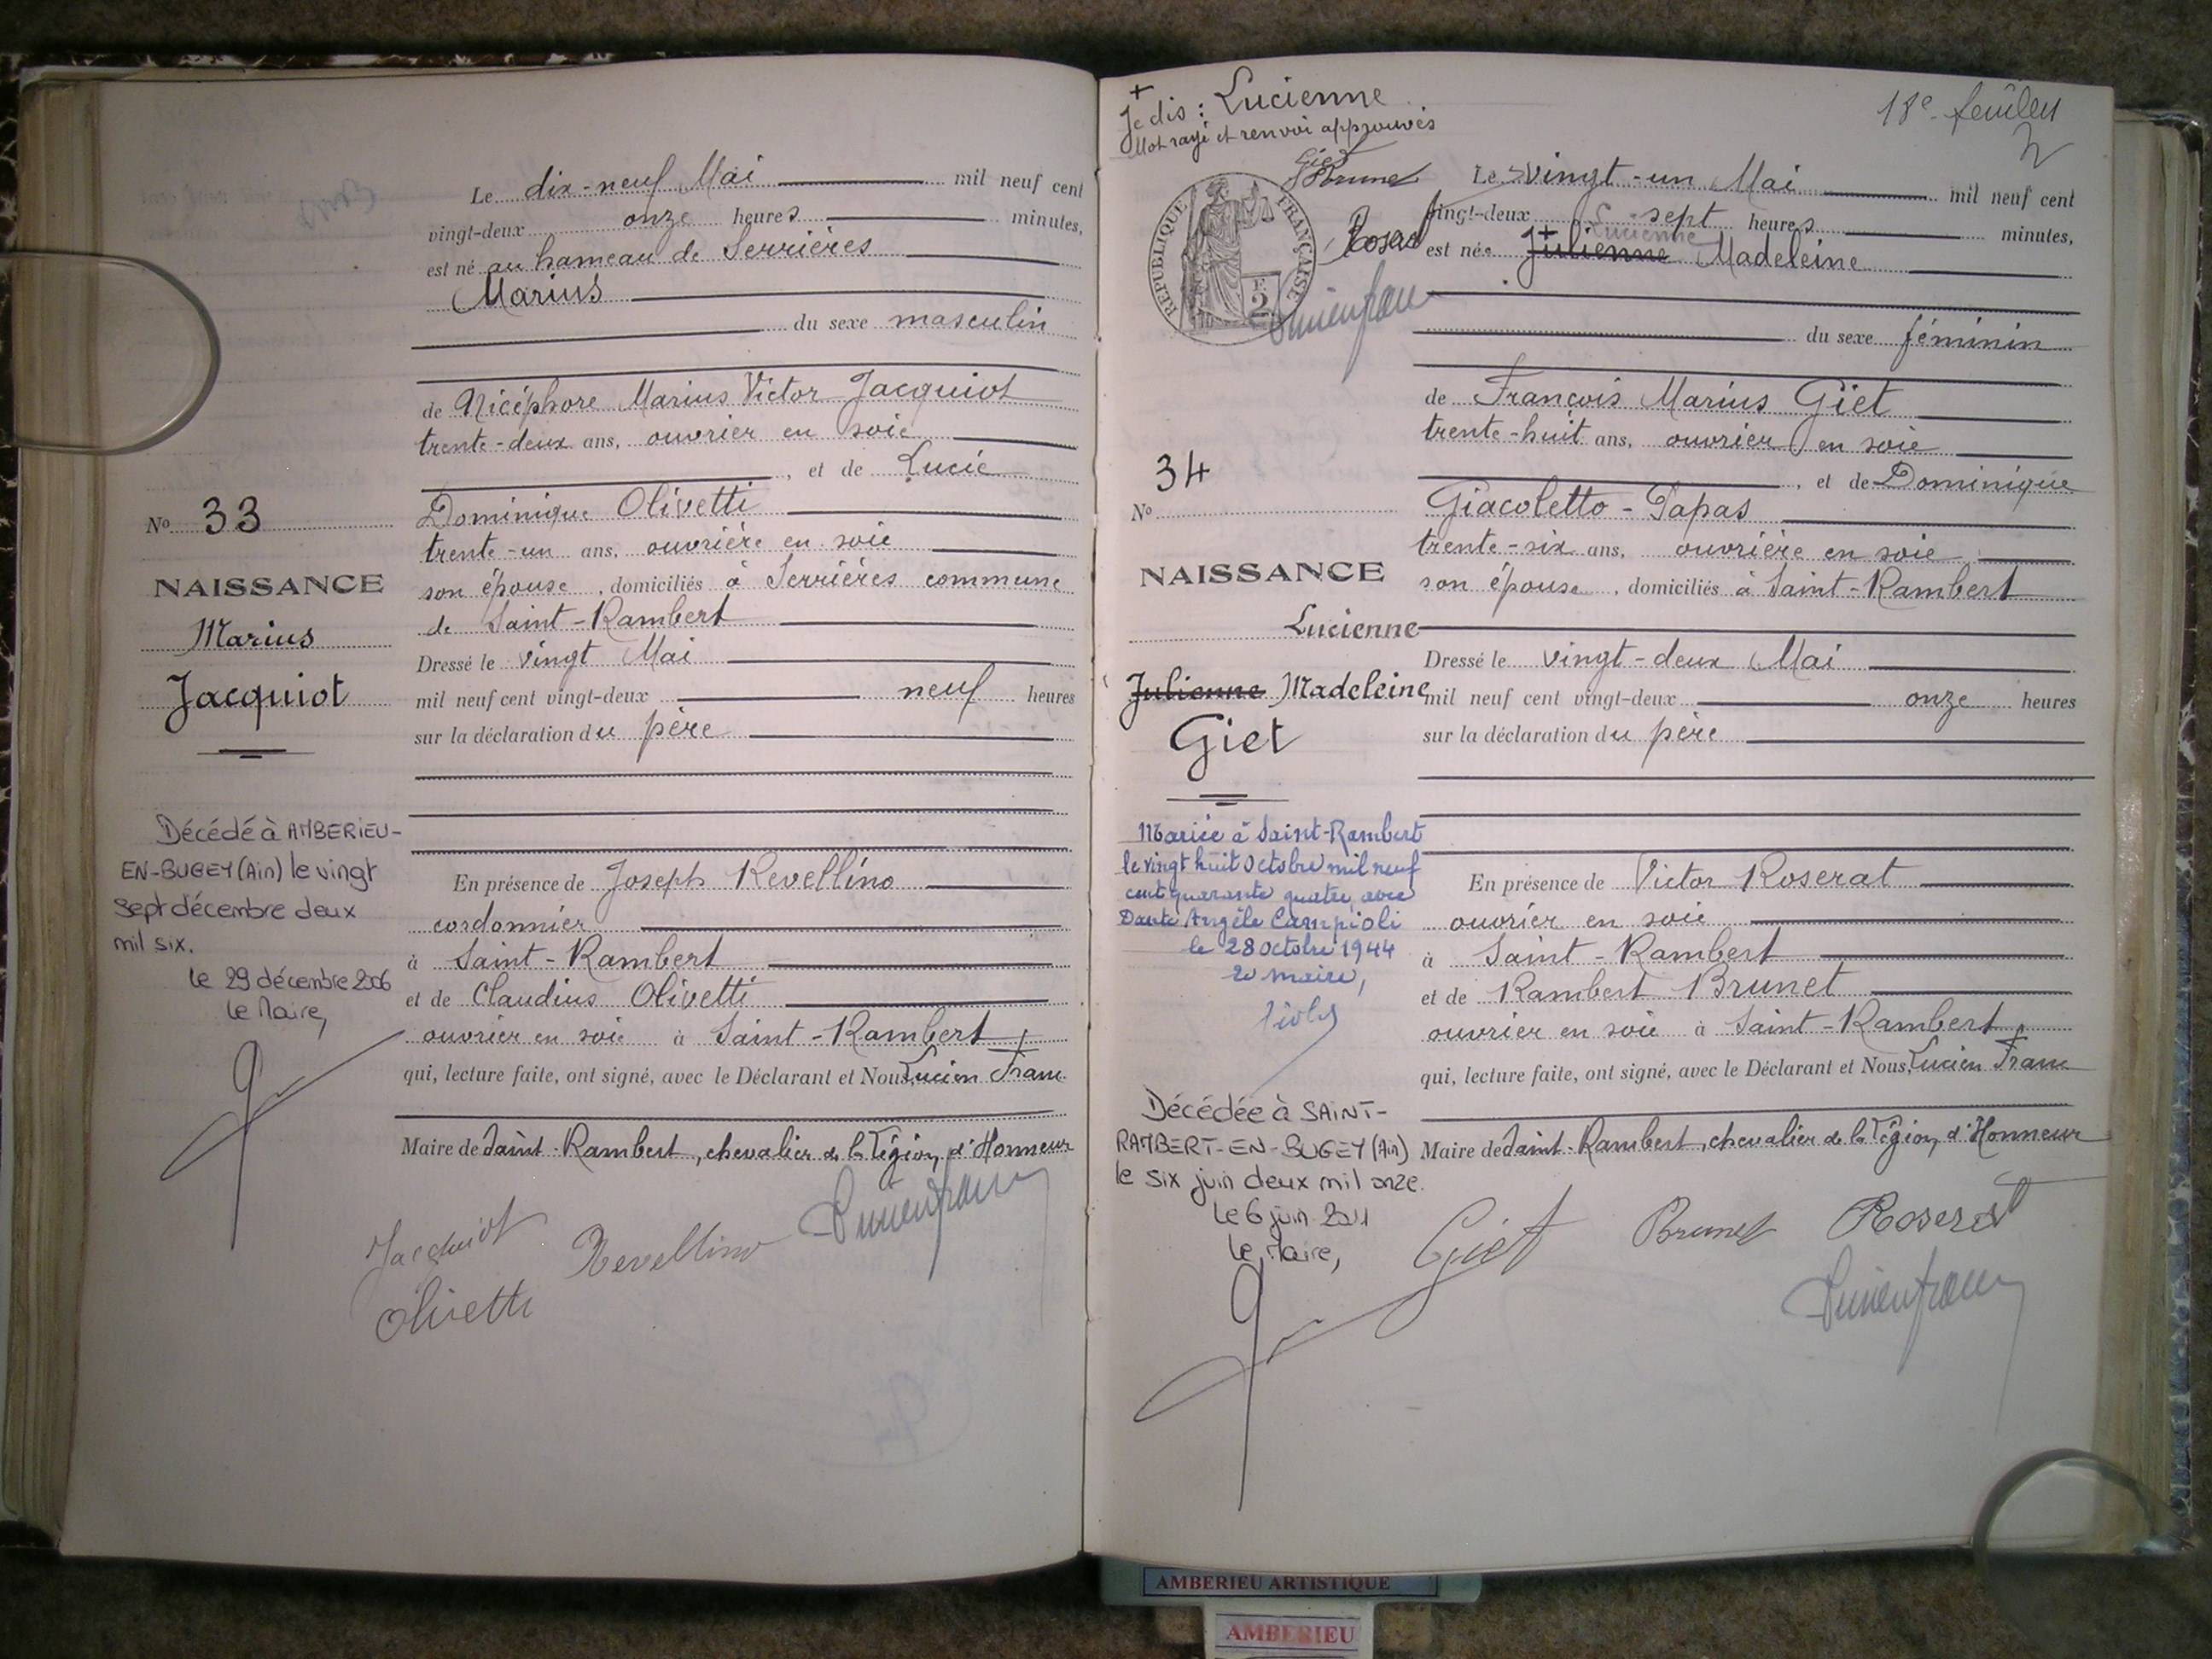 Le dix-neuf Mai mil neuf cent
vingt-deux onze heures minutes,
est né au hameau de Serrières
Marius
du sexe masculin
de Nicéphore Marius Victor Jacquiot
trente-deux ans, ouvrier en soie
, et de Lucie
Dominique Olivetti
trente-un ans, ouvrière en soie
son épouse, domiciliés à Serrières commune
de Saint-Rambert
Dressé le vingt Mai
mil neuf cent vingt-deux neuf heures
sur la déclaration du père
En présence de Joseph Revellino
cordonnier
à Saint-Rambert
et de Claudius Olivetti
ouvrier en soie à Saint-Rambert
qui, lecture faite, ont signé, avec le Déclarant et Nous, Lucien Franc
Maire de Saint-Rambert, chevalier de la Légion d'Honneur
Jacquiot
Revellino
Olivetti
No 33
NAISSANCE
Marius
Jacquiot
Décédé à AMBERIEU-
EN-BUGEY (Ain) le vingt
sept décembre deux
mil six.
le 29 décembre 2006
Le Maire,
+
Je dis : Lucienne
Mot rayé et renvoi approuvés
Giet
Brunet
Roserat
18e feuillet
REPUBLIQUE FRANÇAISE
F
2
Le vingt-un Mai mil neuf cent
vingt-deux sept heures minutes,
Lucienne
est née + Julienne Madeleine
du sexe féminin
de François Marius Giet
trente-huit ans, ouvrier en soie
, et de Dominique
Giacoletto-Papas
trente-six ans, ouvrière en soie
son épouse, domiciliés à Saint-Rambert
Dressé le vingt-deux Mai
mil neuf cent vingt-deux onze heures
sur la déclaration du père
En présence de Victor Roserat
ouvrier en soie
à Saint-Rambert
et de Rambert Brunet
ouvrier en soie à Saint-Rambert
qui, lecture faite, ont signé, avec le Déclarant et Nous, Lucien Franc
Maire de Saint-Rambert, chevalier de la Légion d'Honneur
Giet Brunet Roserat
No 34
NAISSANCE
Lucienne
Julienne Madeleine
Giet
Mariée à Saint-Rambert
le vingt huit Octobre mil neuf
cent quarante quatre avec
Dante Angèle Campioli
le 28 octobre 1944
Le maire,
Décédée à SAINT-
RAMBERT-EN-BUGEY (Ain)
le six juin deux mil onze.
Le 6 juin 2011
Le Maire,
AMBERIEU ARTISTIQUE
AMBERIEU